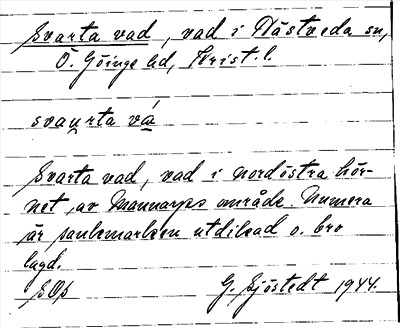 Svarta vad, vad i Nästveda sn,
Ö. Göinge hd, Krist. l.
svau̯rta vá
Svarta vad, vad i nordöstra hör-
net av Mannarps område. Numera
är sankmarken utdikad o. bro
lagd.
SOS G. Sjöstedt 1944.